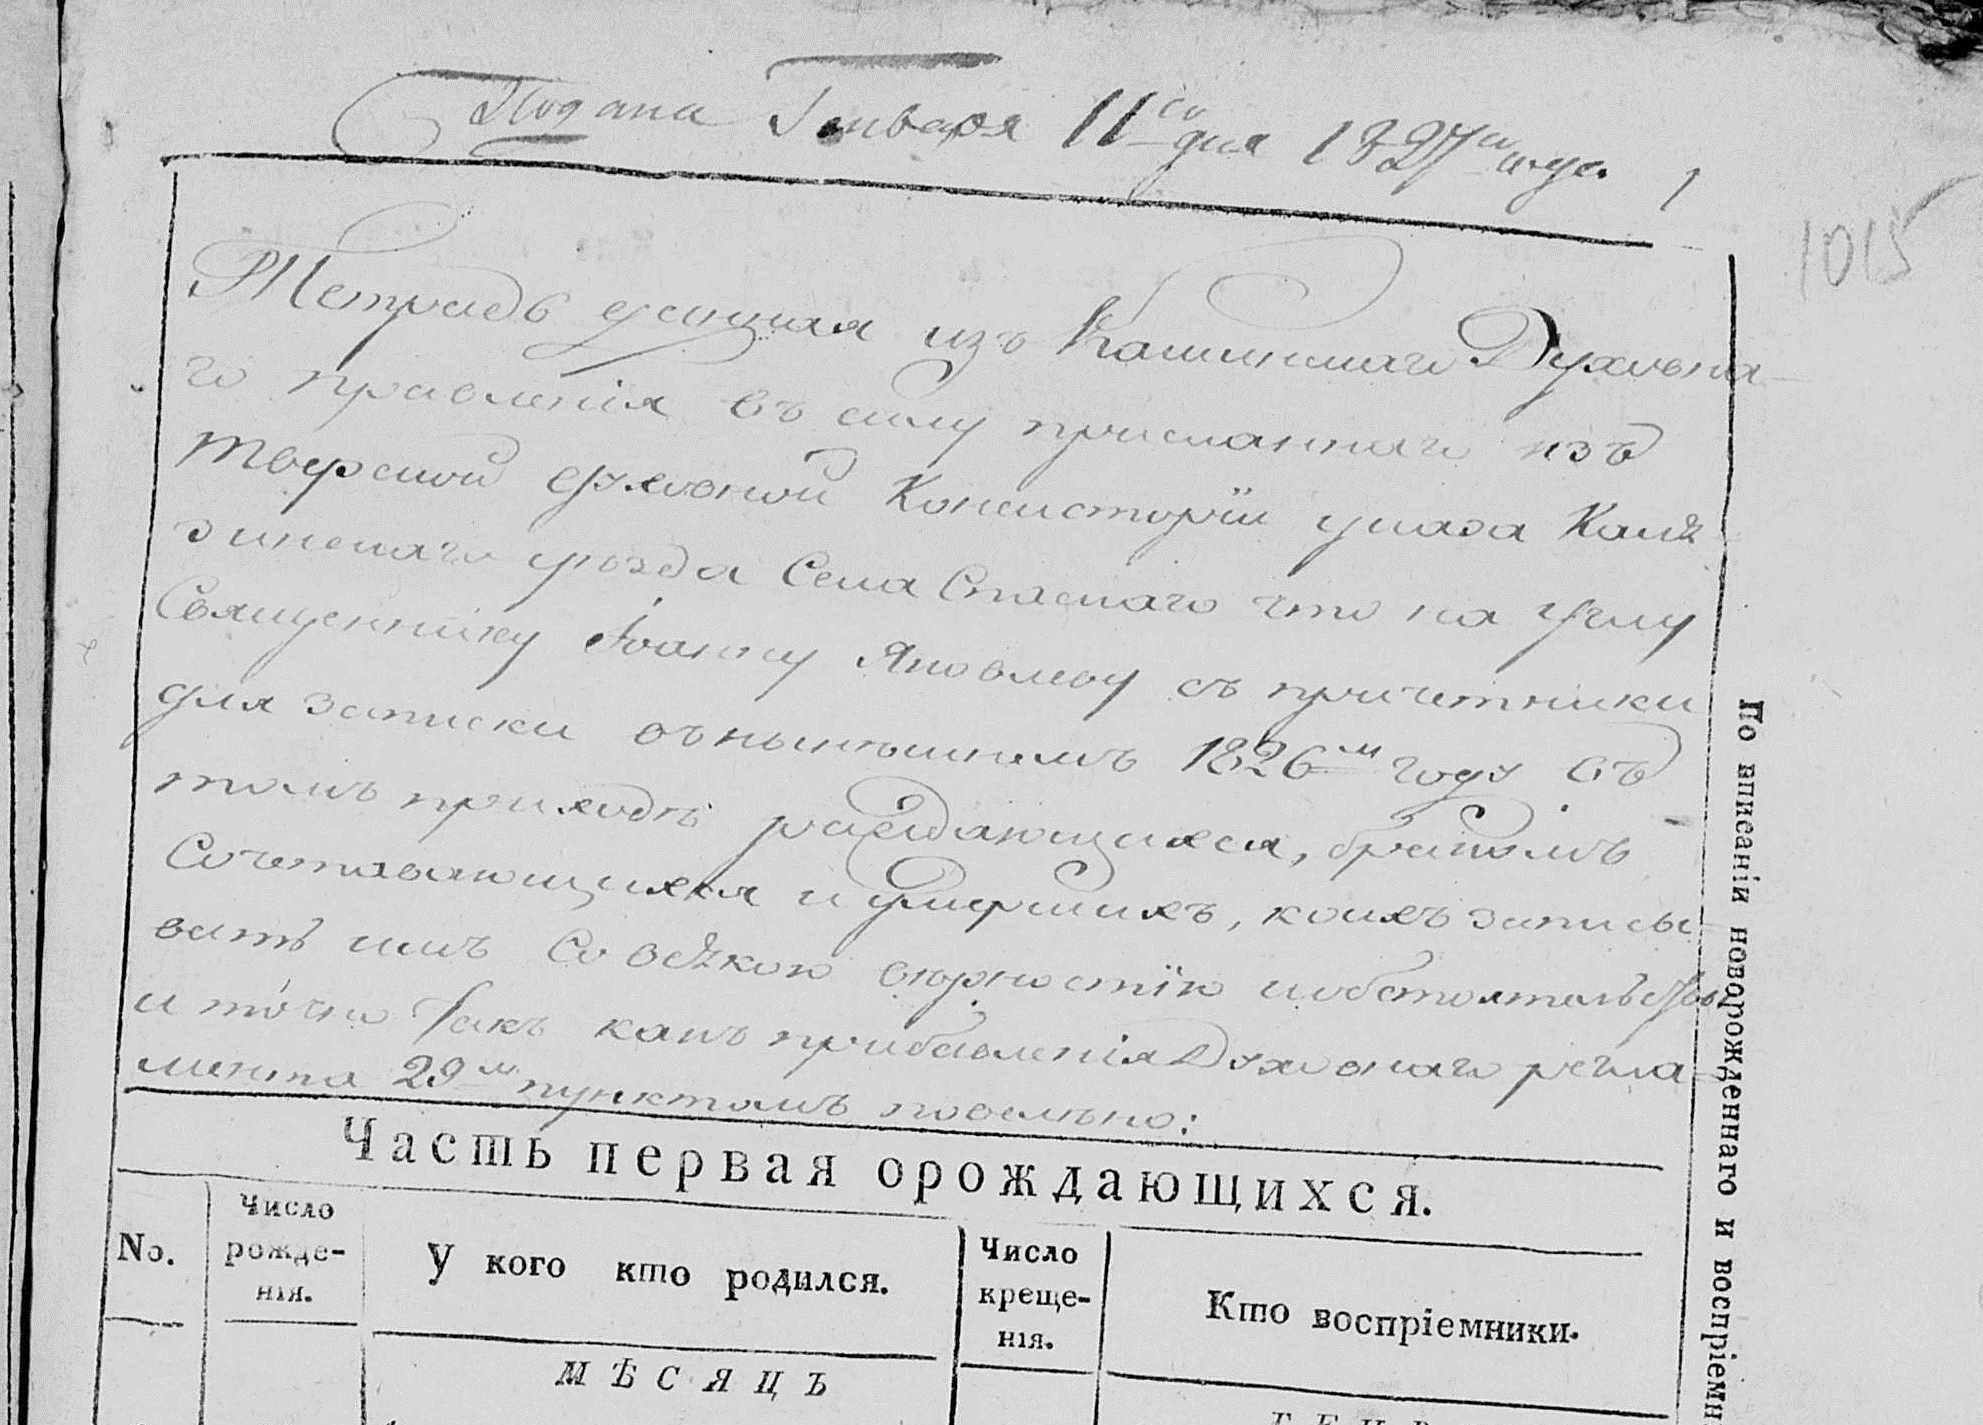 Подана Генваря 11го дня 1827го года.
1
1015
Тетрадь данная изъ Кашинскаго Духовна-
го правленія въ силу присланнаго изъ
Тверской духовной Консисторіи указа Каля
зинскаго уѣзда Села Спаскаго что на углу
Священнику Іоанну Яковлеву съ причетники
для записки въ нынѣшнемъ 1826м году въ
томъ приходѣ раждающихся, бракомъ
Сочетавающихся и умершихъ, коихъ записы-
вать имъ Со всякою вѣрностію и обстоятельствы
и точно такъ какъ прибавленія Духовнаго регла-
мента 29м пунктомъ повелѣно:
Часть первая орождающихся.
No.
Число рожде- нія.
У кого кто родился.
Число креще- нія.
Кто воспріемники.
МѢСЯЦЪ
По вписаніи новорожденнаго и воспріемн